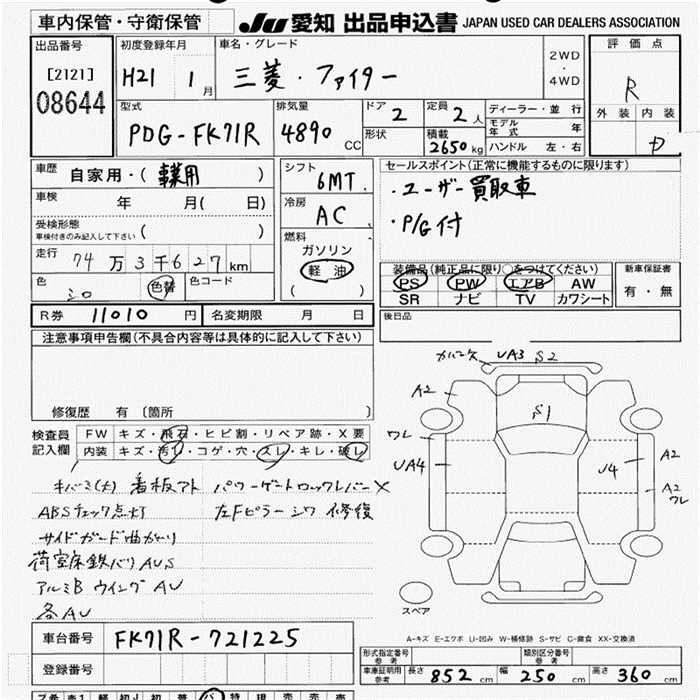 車内保管・守衛保管
JU 愛知 出品申込書 JAPAN USED CAR DEALERS ASSOCIATION
出品番号
[2121]
08644
初度登録年月
H21 1月
車名・グレード
三菱・ファイター
2WD
・
4WD
評価点
R
外装 内装
D
型式
PDG-FK71R
排気量
4890 CC
ドア 2
形状
定員 2人
積載 2650kg
ディーラー・並行
モデル年式 年
ハンドル 左・右
車歴
自家用・(事業用)
車検
年 月( 日)
受検形態
車検付きのみ記入して下さい ( )
走行
74万3千627km
色
シロ
色替
色コード
シフト
6MT
冷房
AC
燃料
ガソリン
軽油
( )
セールスポイント(正常に機能するものに限ります)
・ユーザー買取車
・P/G付
装備品(純正品に限り○をつけてください)
PS PW エアB AW
SR ナビ TV カワシート
新車保証書
有・無
R券 11010円
名変期限 月 日
後日品
注意事項申告欄(不具合内容等は具体的に記入して下さい)
修復歴 有 〔箇所 〕
検査員記入欄
FW キズ・飛石・ヒビ割・リペア跡・X要
内装 キズ・汚れ・コゲ・穴・スレ・キレ・破レ
キバミ(大) 看板アト パワーゲートロックレバーX
ABSチェック点灯 左Fピラーシワ 修復
サイドガード曲がり
荷室床鉄バリAUS
アルミB ウイング AU
各AU
カルコ欠 UA3 S2
A2
S1
ワレ
UA4
U4
A2
A2
ワレ
スペア
A-キズ E-エクボ U-凹み W-補修跡 S-サビ C-腐食 XX-交換済
車台番号
FK71R-721225
登録番号
形式指定番号
参考
類別区分番号
参考
車庫証明用
参考
長さ 852cm 幅 250cm 高さ 360cm